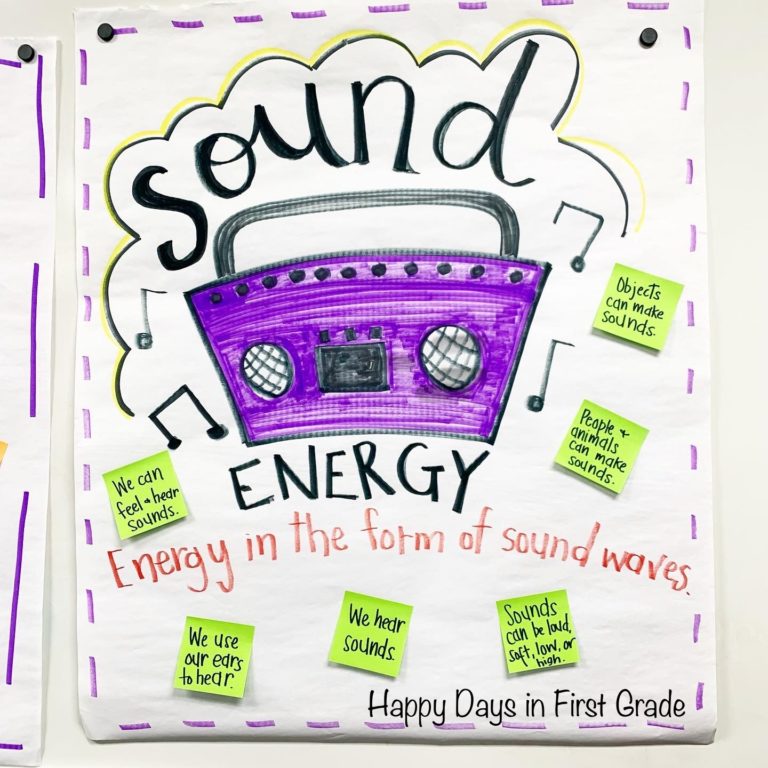 Sound
ENERGY
Energy in the form of sound waves.
Objects
can make
sounds.
People +
animals
can make
sounds.
We can
feel + hear
sounds.
We use
our ears
to hear.
We hear
sounds.
Sounds
can be loud,
soft, low, or
high.
Happy Days in First Grade